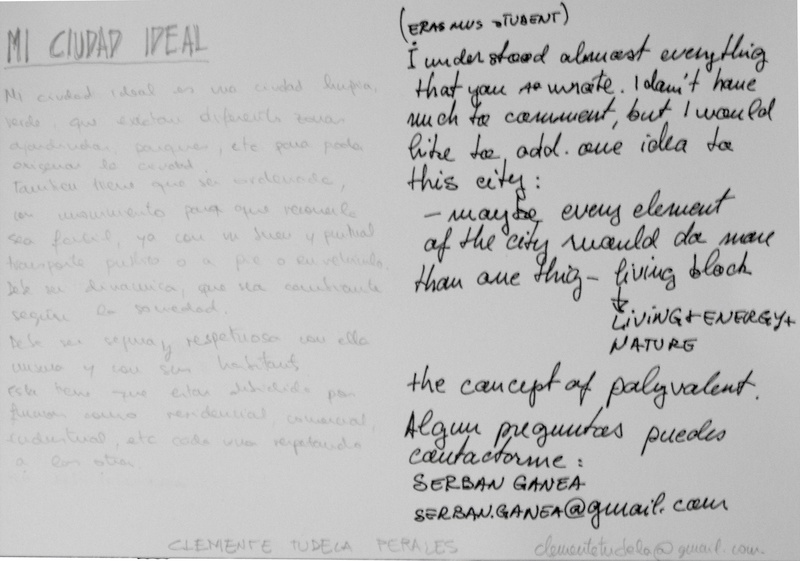 MI CIUDAD IDEAL
Mi ciudad ideal es una ciudad limpia,
verde, que existan diferentes zonas
ajardinadas, parques, etc para poder
oxigenar la ciudad.
También tiene que ser ordenada,
un movimiento para que recorrerla
sea fácil, ya con un buen y puntual
transporte público o a pie o en vehículo.
Debe ser dinámica, que sea cambiante
según la sociedad.
Debe ser segura y respetuosa con ella
misma y con sus habitants
Esta tiene que estar dividida por
funciones como residencial, comercial,
industrial, etc cada una respetando
a las otras.
(ERASMUS STUDENT)
I understood almost everything
that you wrote. I don't have
much to comment, but I would
like to add. one idea to
this city:
- maybe every element
of the city would do more
than one thig - living block
↓
LIVING + ENERGY +
NATURE
the concept of polyvalent.
Algun preguntas puedes
contactorme:
SERBAN GANEA
SERBAN.GANEA@gmail.com
CLEMENTE TUDELA PERALES clementetudela@gmail.com